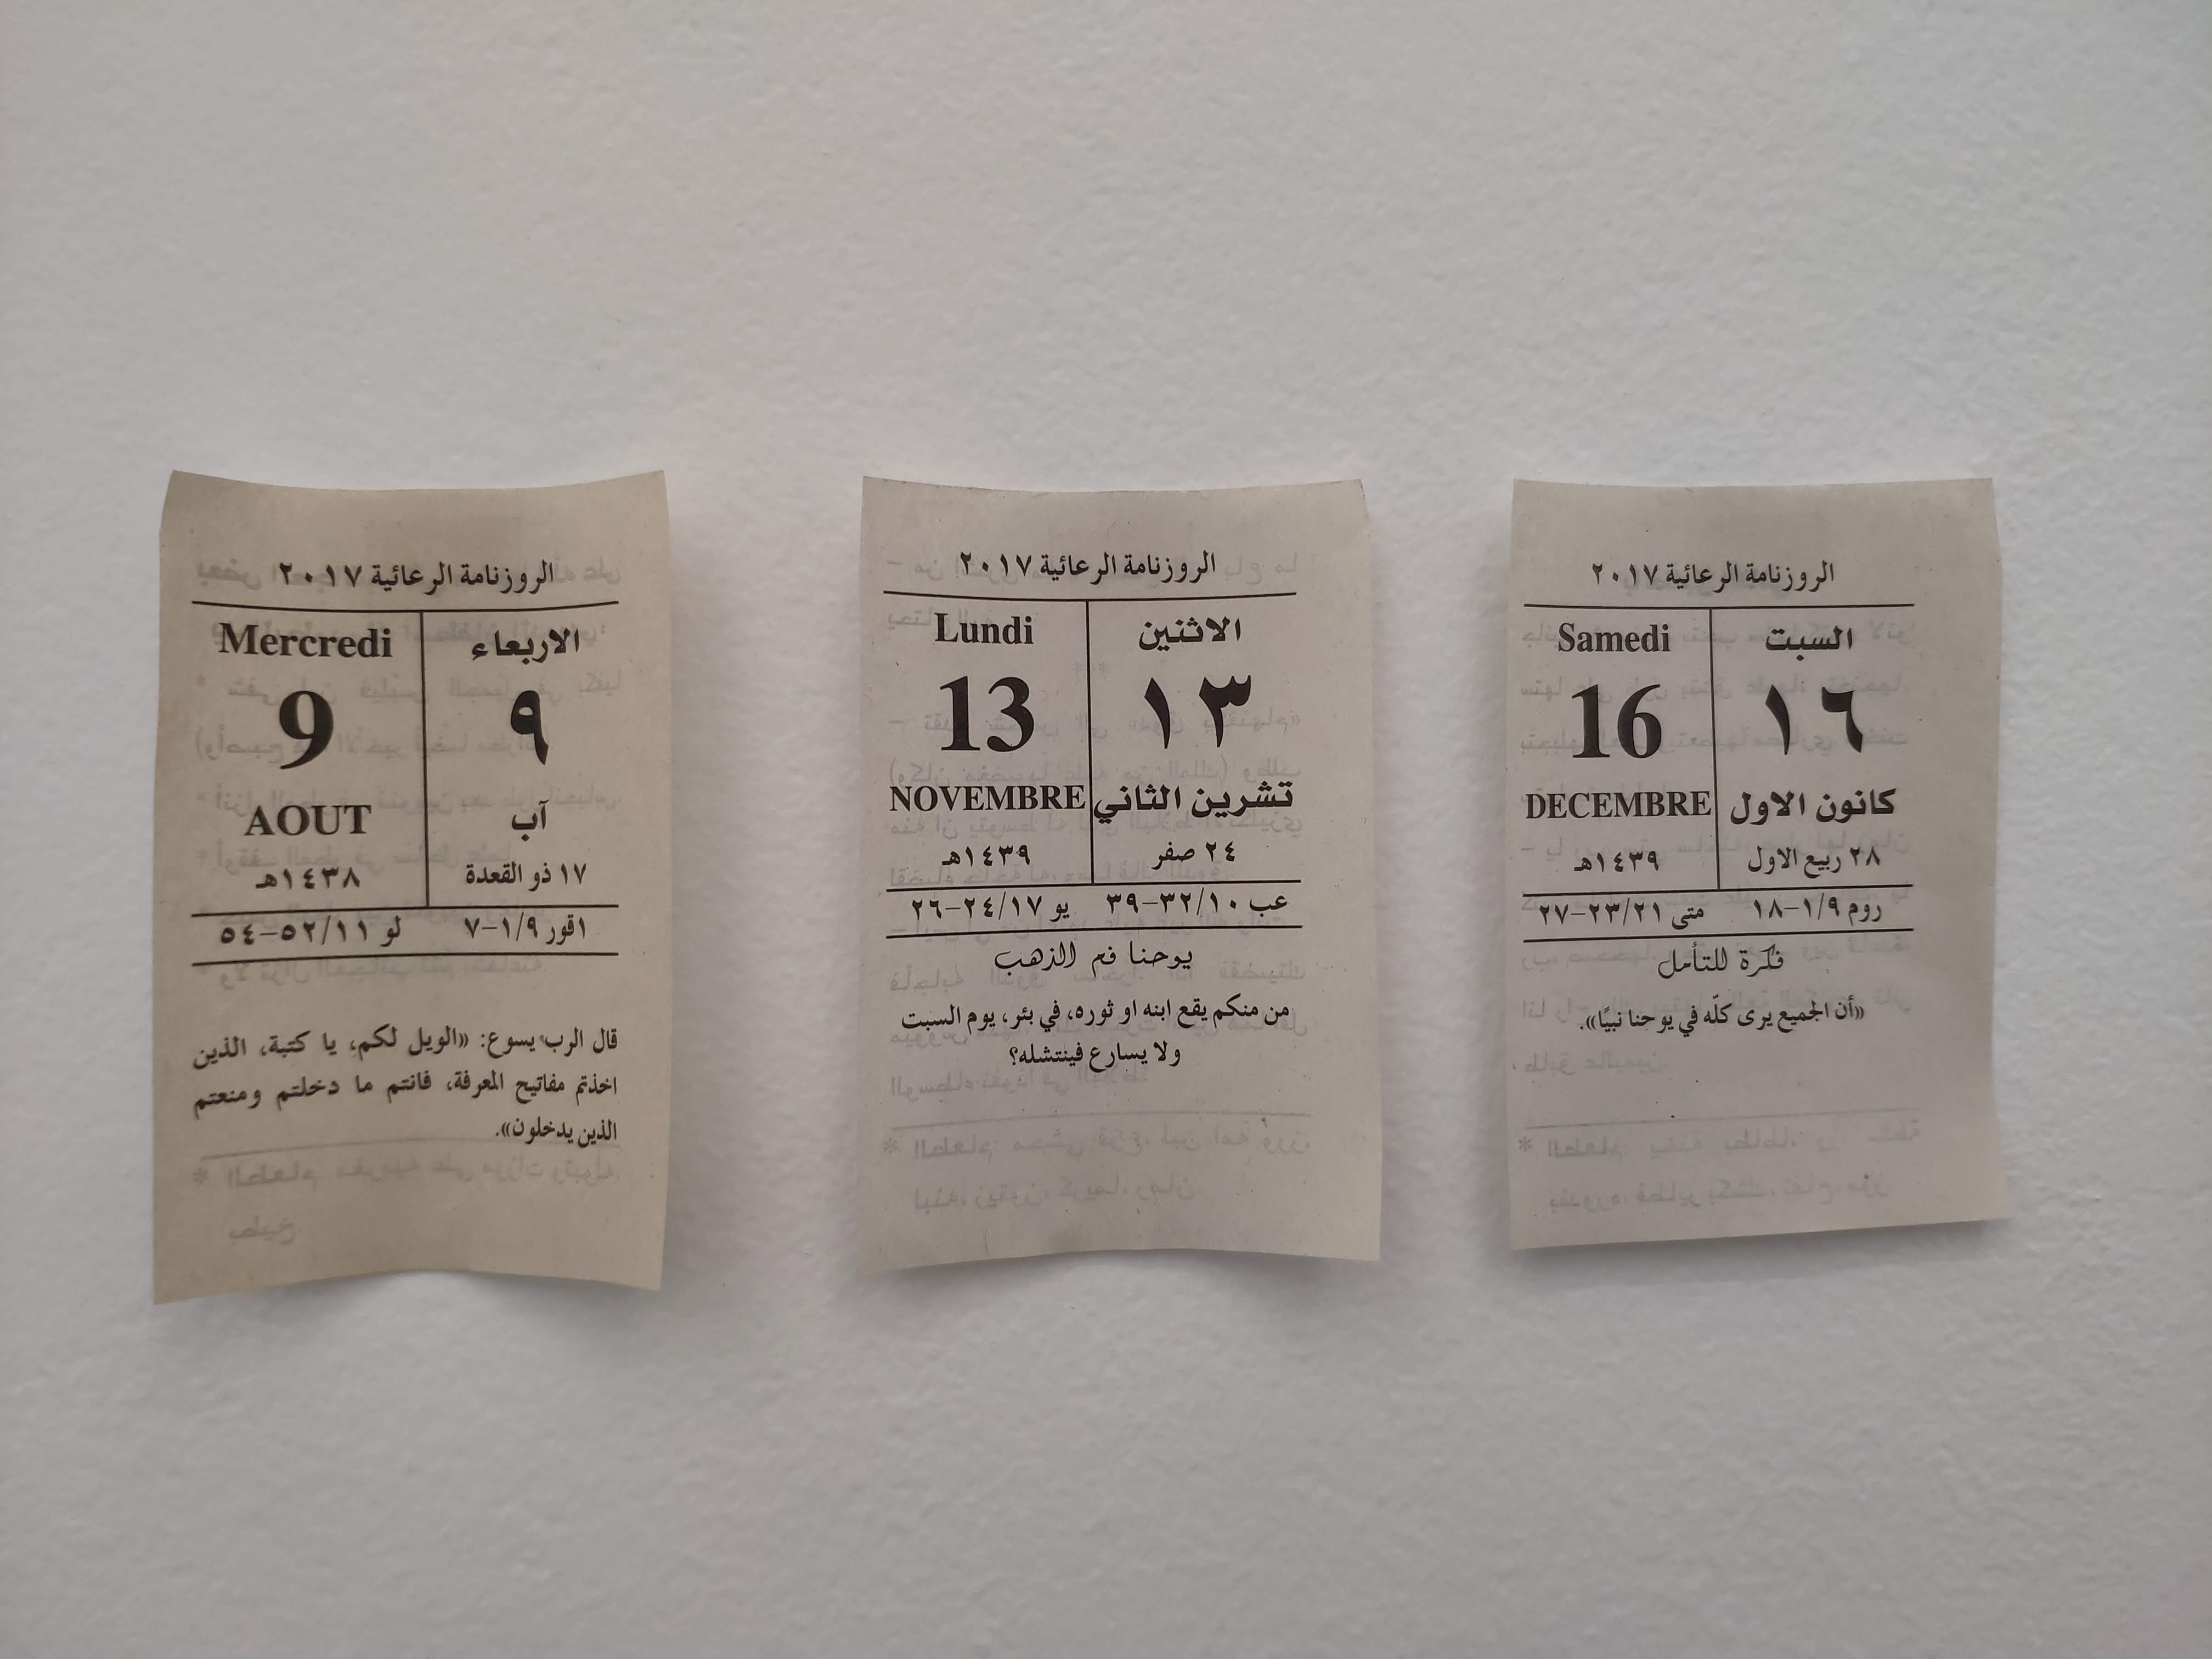 الروزنامة الرعائية ٢٠١٧
Mercredi الاربعاء
9 ٩
AOUT آب
١٤٣٨هـ ١٧ ذو القعدة
١قور ١/٩-٧ لو ٥٢/١١-٥٤
قال الرب يسوع: «الويل لكم، يا كتبة، الذين
اخذتم مفاتيح المعرفة، فانتم ما دخلتم ومنعتم
الذين يدخلون».
الروزنامة الرعائية ٢٠١٧
Lundi الاثنين
13 ١٣
NOVEMBRE تشرين الثاني
١٤٣٩هـ ٢٤ صفر
عب ٣٢/١٠-٣٩ يو ٢٤/١٧-٢٦
يوحنا فم الذهب
من منكم يقع ابنه او ثوره، في بئر، يوم السبت
ولا يسارع فينتشله؟
الروزنامة الرعائية ٢٠١٧
Samedi السبت
16 ١٦
DECEMBRE كانون الاول
١٤٣٩هـ ٢٨ ربيع الاول
روم ١/٩-١٨ متى ٢٣/٢١-٢٧
فكرة للتأمل
«أن الجميع يرى كلّه في يوحنا نبيًا».